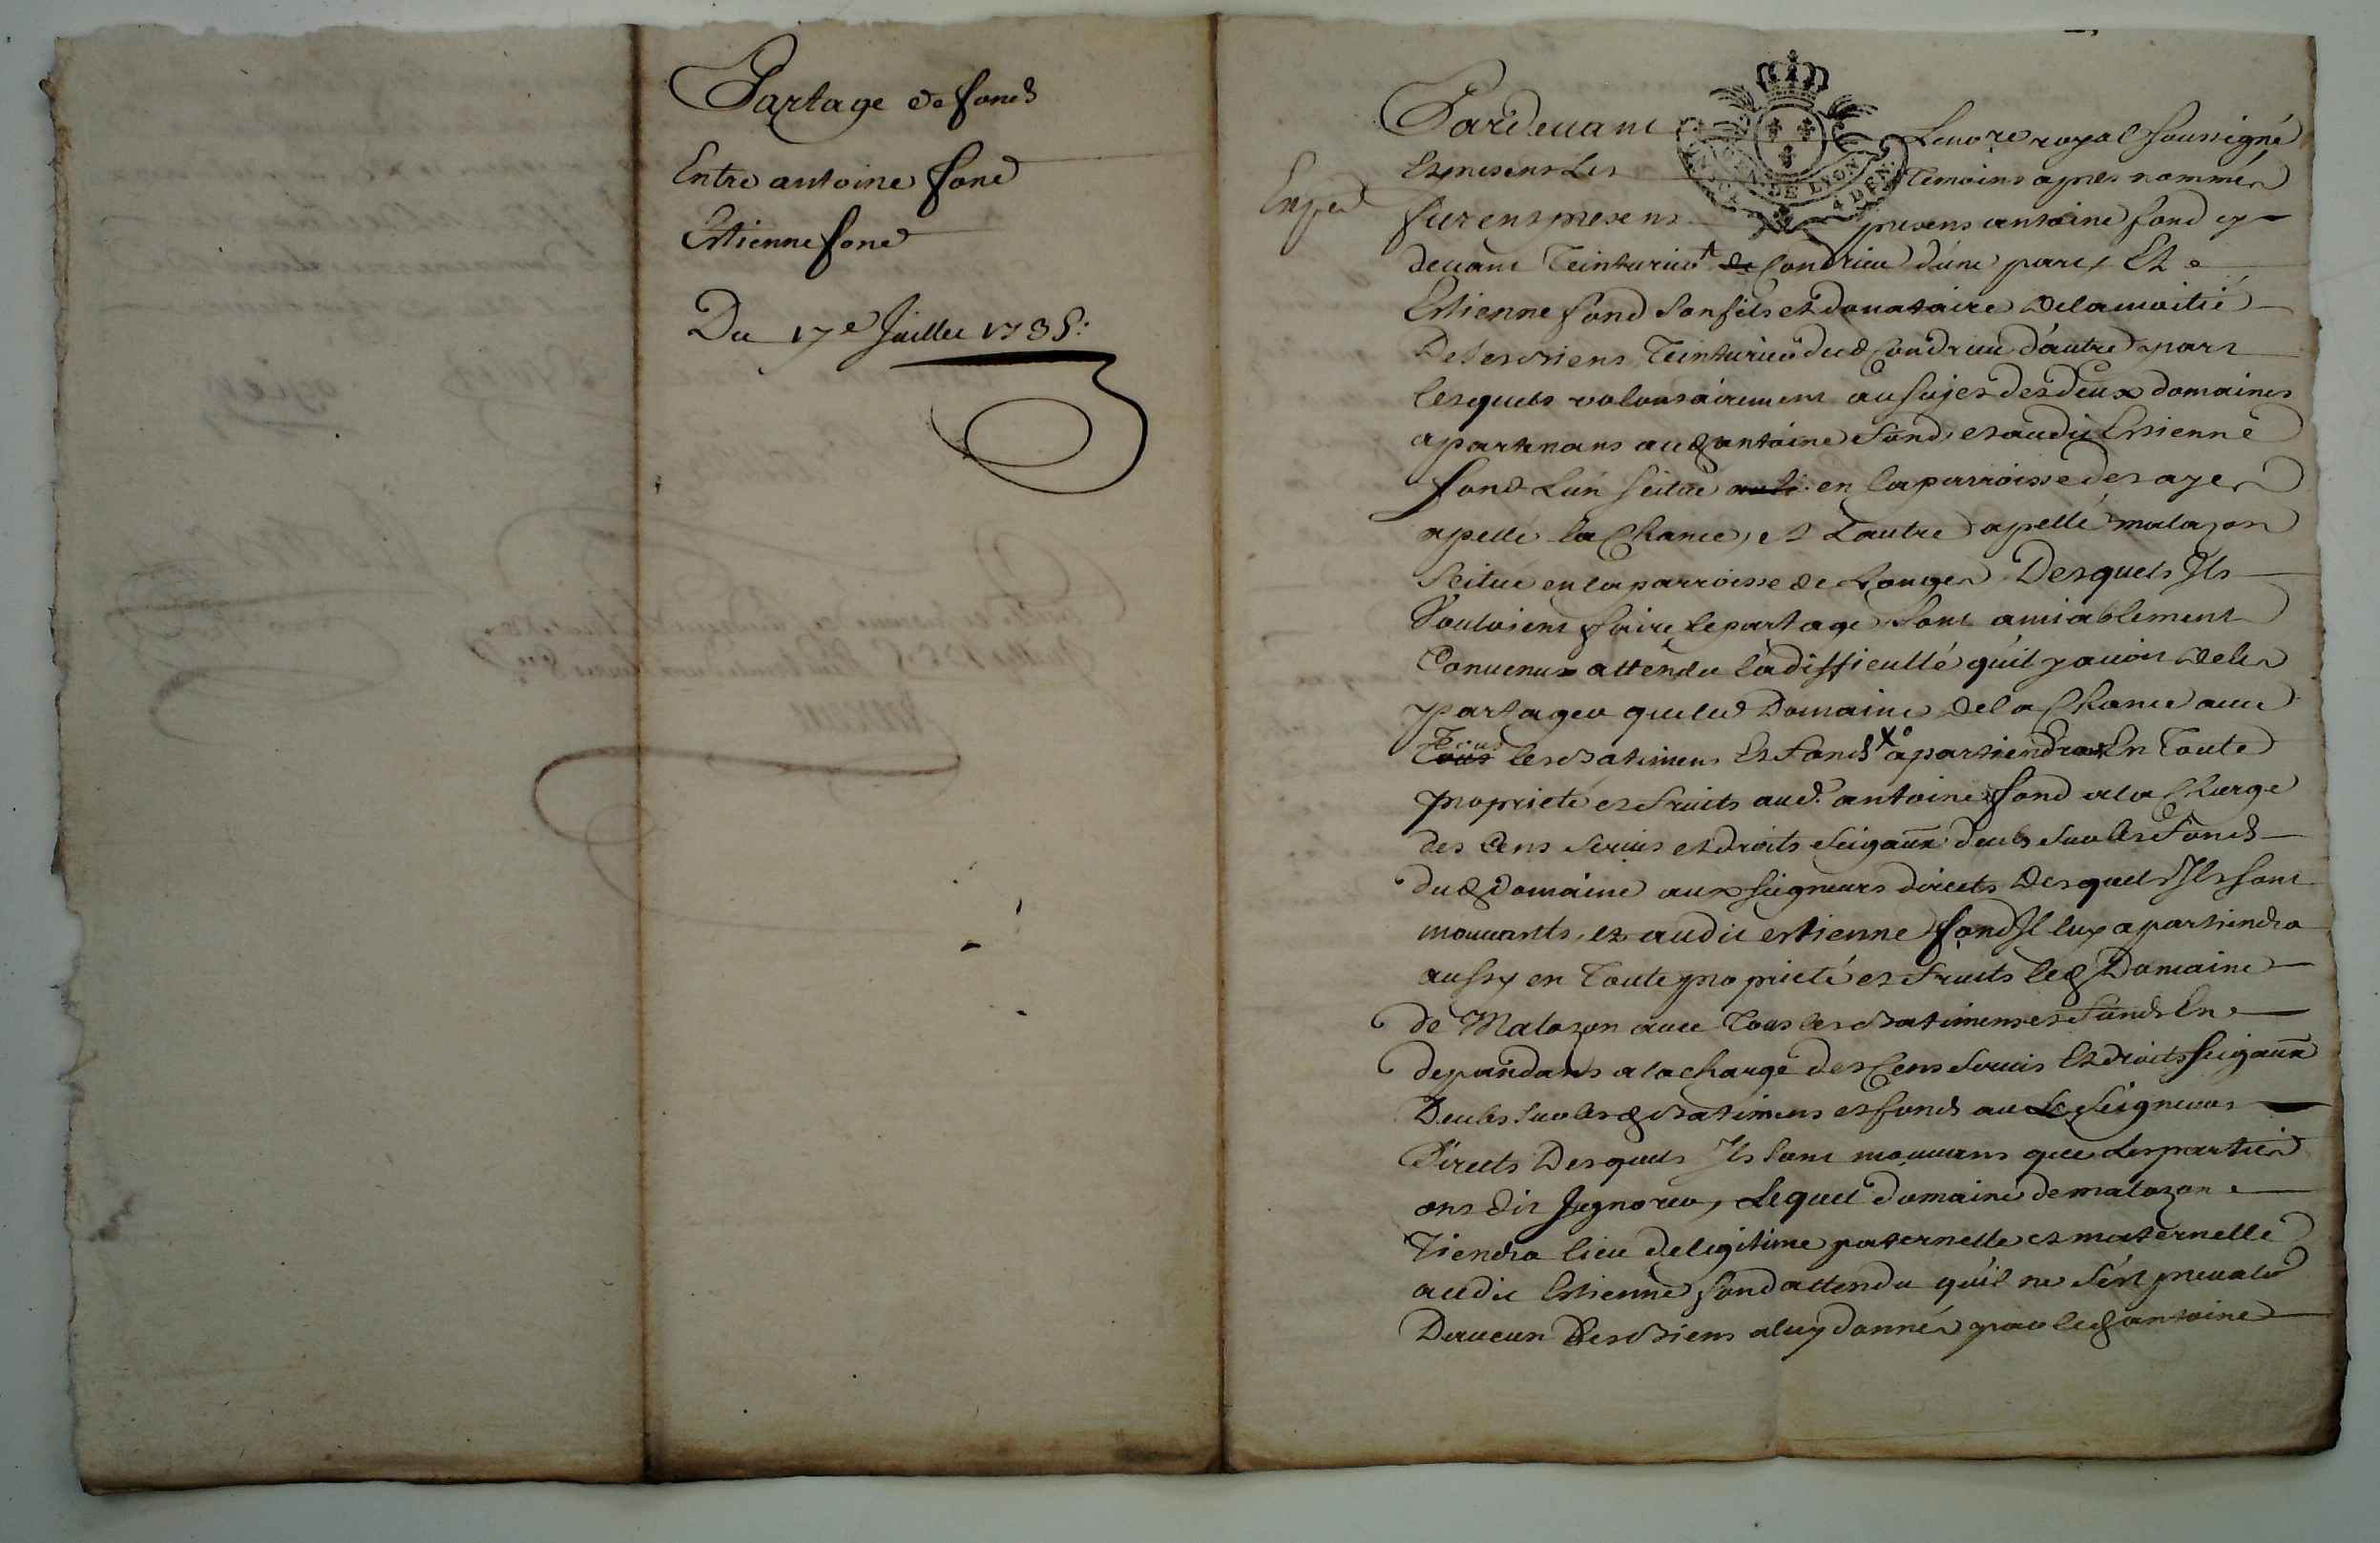 Partage de fonds
Entre antoine fond
Estienne fond
Du 17e Juillet 1735:
Expéd
Pardevant Le no.re royal soussigné
Et presens Les Temoins apres nommés
furent presens presens antoine fond cy
devant Teinturier de Condrieu d'une part, Et
Estienne fond son fils et donataire de la moitié
De ses biens Teinturier dud Condrieu d'autre part
lesquels volontairement au sujet des deux domaines
apartenans aud antoine fond et audit Estienne
fond L'un scitué en la parroisse des ayes
apellé la Chance, et L'autre apellé malazon
scitué en la parroisse de Longes Desquels Ils
Vouloient faire le partage sont amiablement
Convenus attendu la difficullé qu'il y avoit de les
partager que led Domaine de la Chance avec
Tous les batimens Et fonds apartiendra En Toute
proprieté et fruits aud. antoine fond a la Charge
des Cens servis et droits seigaux deubs sur les fonds
dud Domaine aux seigneurs directs Desquels Ils sont
mouvants, et audit estienne fond Il luy apartiendra
aussy en Toute proprieté et fruits led Domaine
de Malozon avec Tous les batimens et fonds En
dependans a la charge des Cens servis Et droits seigaux
Deubs sur lesd batimens et fonds au Seigneurs
Directs Desquels Ils sont mouvans que Les parties
ont dit Ignorer, Lequel domaine de malozon
Tiendra lieu de legitime paternelle et maternelle
audit Estienne fond attendu qu'il ne s'est prevalu
D'aucun Des biens a luy donnés par led antoine